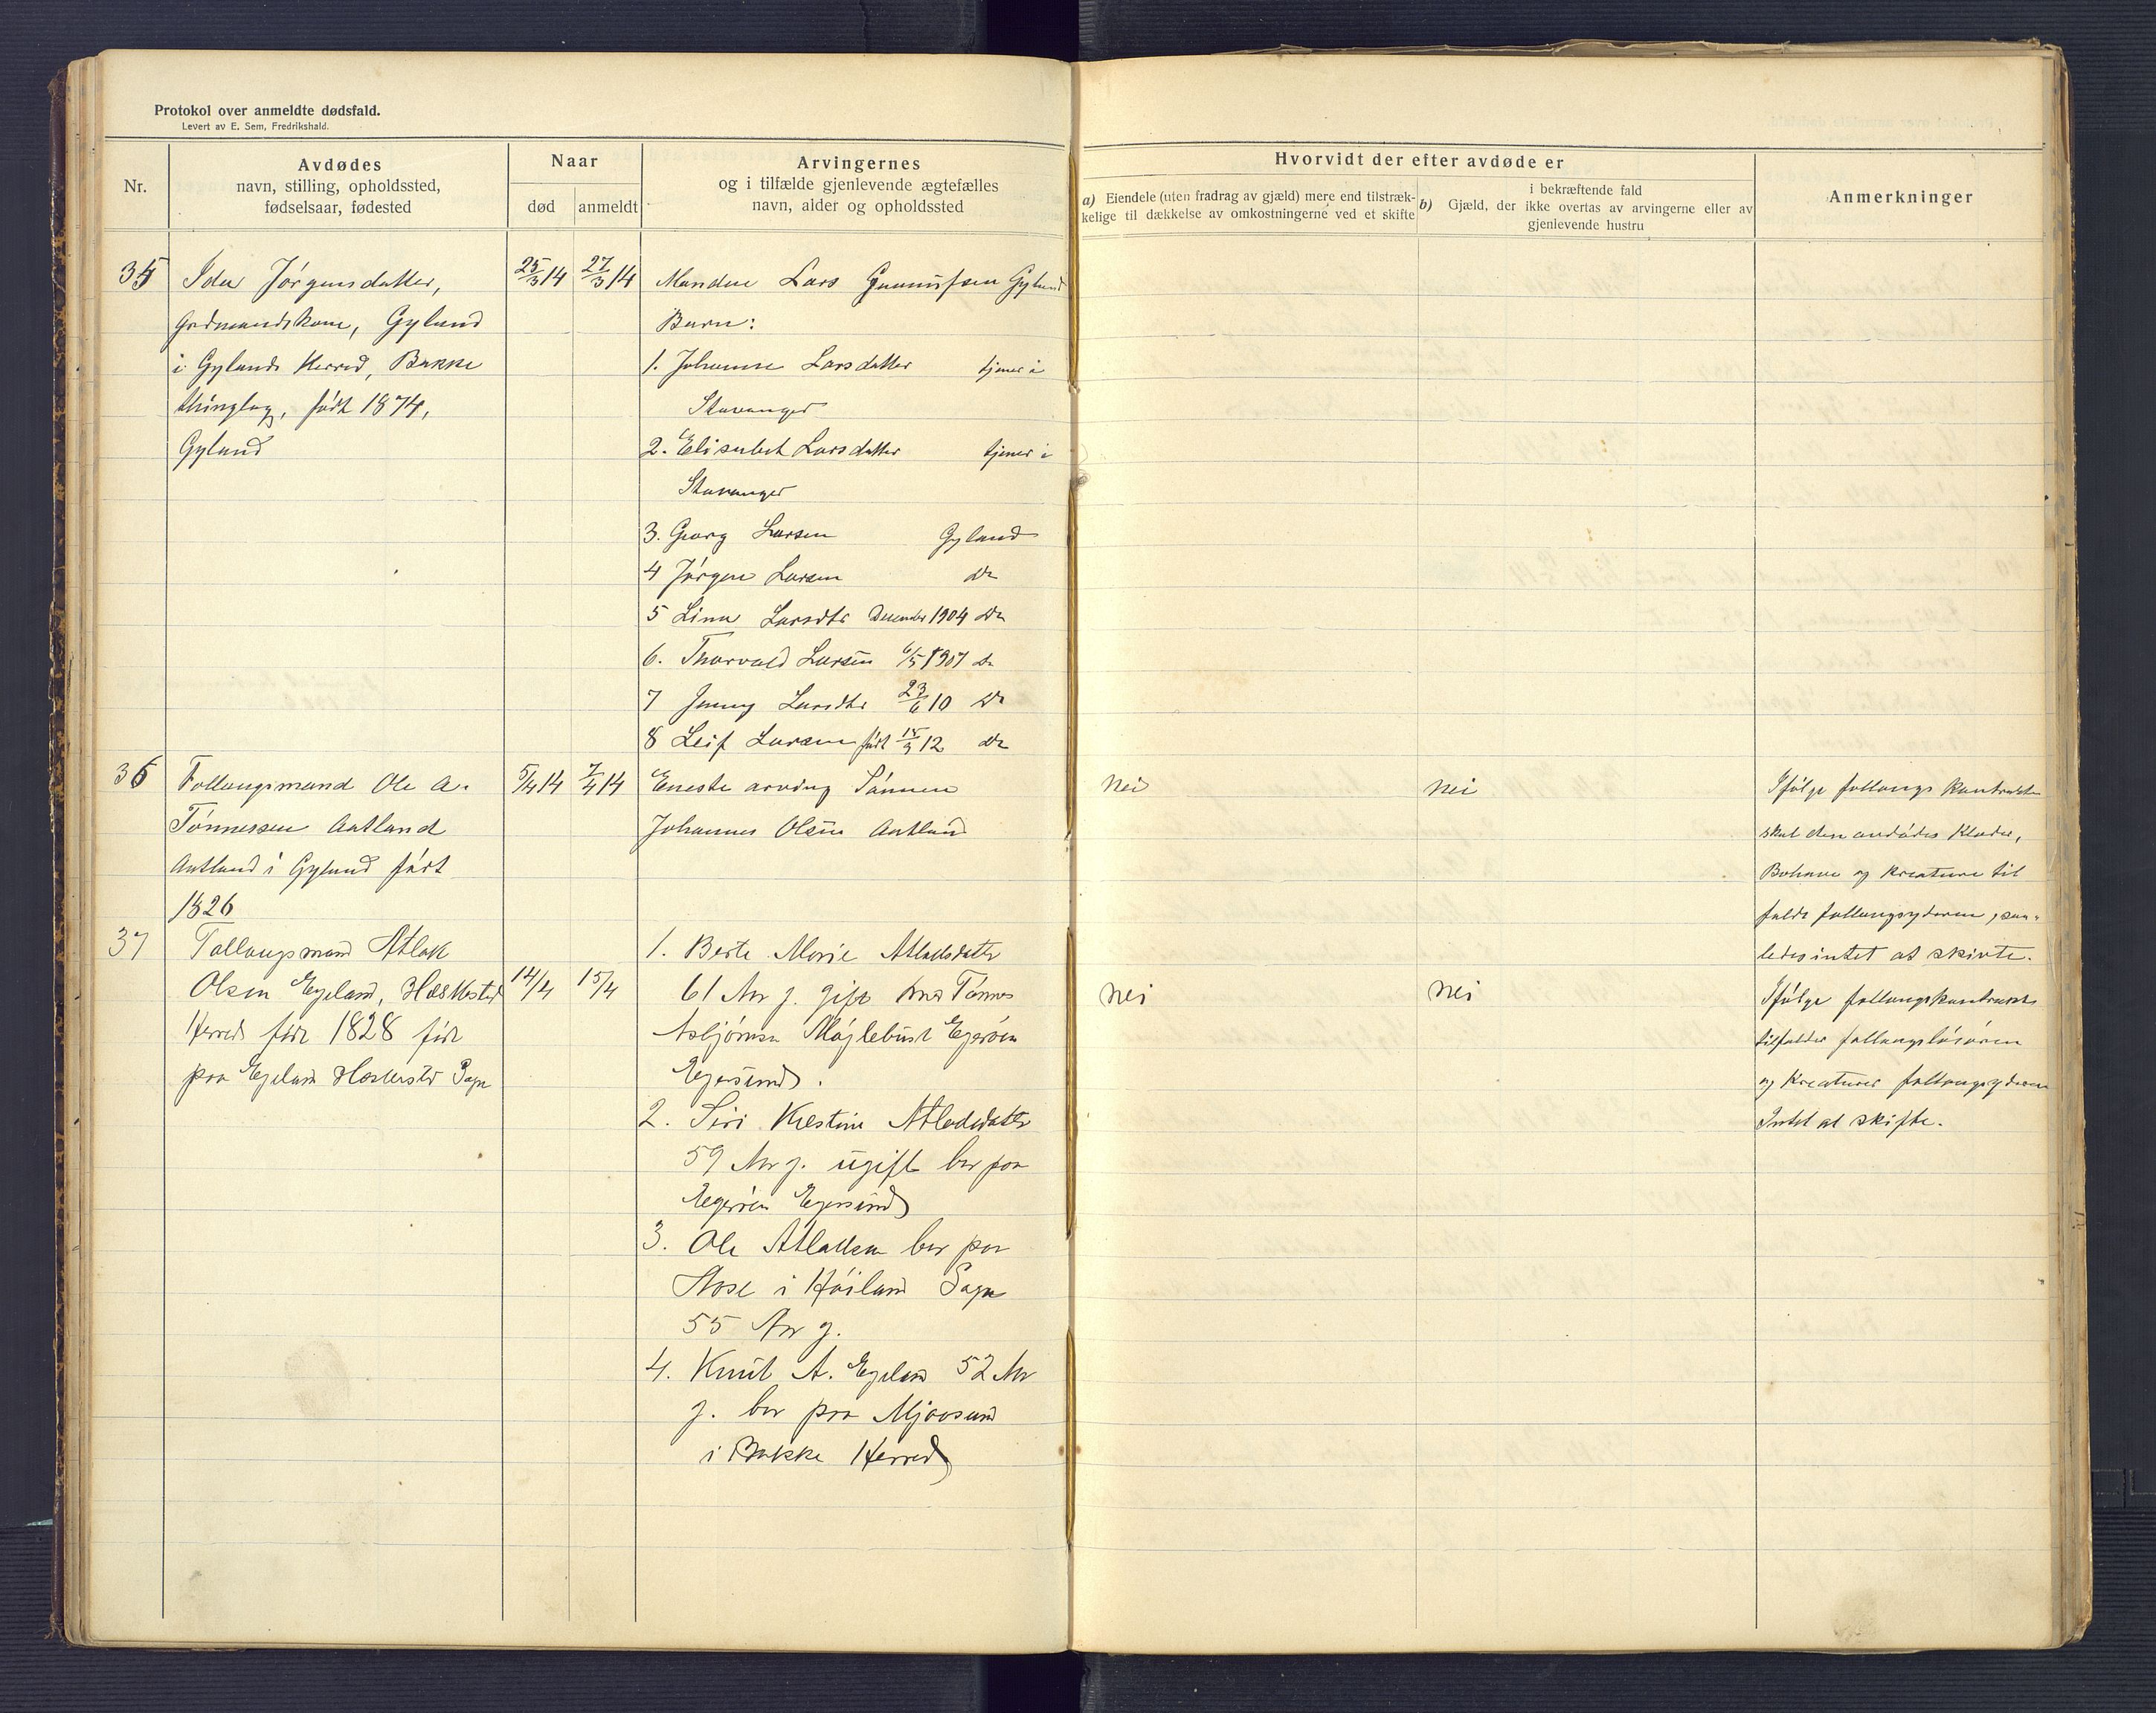 Protokol over anmeldte dødsfald.
Levert av E. Sem, Fredrikshald.
Nr.
Avdødes
navn, stilling, opholdssted,
fødselsaar, fødested
Naar
død
anmeldt
Arvingernes
og i tilfælde gjenlevende ægtefælles
navn, alder og opholdssted
Hvorvidt der efter avdøde er
a) Eiendele (uten fradrag av gjæld) mere end tilstræk-
kelige til dækkelse av omkostningerne ved et skifte
i bekræftende fald
b) Gjæld, der ikke overtas av arvingerne eller av
gjenlevende hustru
Anmerkninger
35
Ida Jørgensdatter,
Gyland
i Gylands Herred, Bakke
thinglag, født 1874,
Gyland
25/3 14
27/3 14
Manden Lars Gyland
Barn:
1. Johanne Larsdatter tjener i
Stavanger
2. Elisabet Larsdatter tjener i
Stavanger
3. Georg Larsen Gyland
4 Jørgen Larsen Do
5 Lina Larsdtr December 1904 Do
6. Thorvald Larsen 6/5 1907 Do
7 Jenny Larsdtr 23/6 10 Do
8 Leif Larsen født 12 Do
36
Follaugsmand Ole A.
Tønnessen Aatland
Aatland i Gyland født
1826
5/4 14
7/4 14
Eneste arving Sønnen
Johannes Olsen Aatland
Nei
Nei
Ifølge follaugs kontrakten
skal den avdødes Klæder,
Bohave og Kreature til
falde follaugsyderen, saa-
ledes intet at skivte.
37
Follaugsmand Atlak
Olsen Egeland, Hæskestad
Herred født 1828 født
paa Egeland Sogn
14/4
15/4
1. Berte Marie Atlaksdatter
61 Aar g. gift med Tønnes
Asbjørnsen Møglebust Egerøen
Egersund.
2. Siri Kestine
59 Aar g. ugift bor paa
Egerøen Egersund
3. Ole Atlaksen bor paa
i Høiland Sogn
55 Aar g.
4. Knut A. Egeland 52 Aar
g. bor paa Mjaasund
i Bakke Herred
Nei
Nei
Ifølge follaugskontrakt
tilfalder
og Kreaturer follaugsyderen
Intet at skifte.